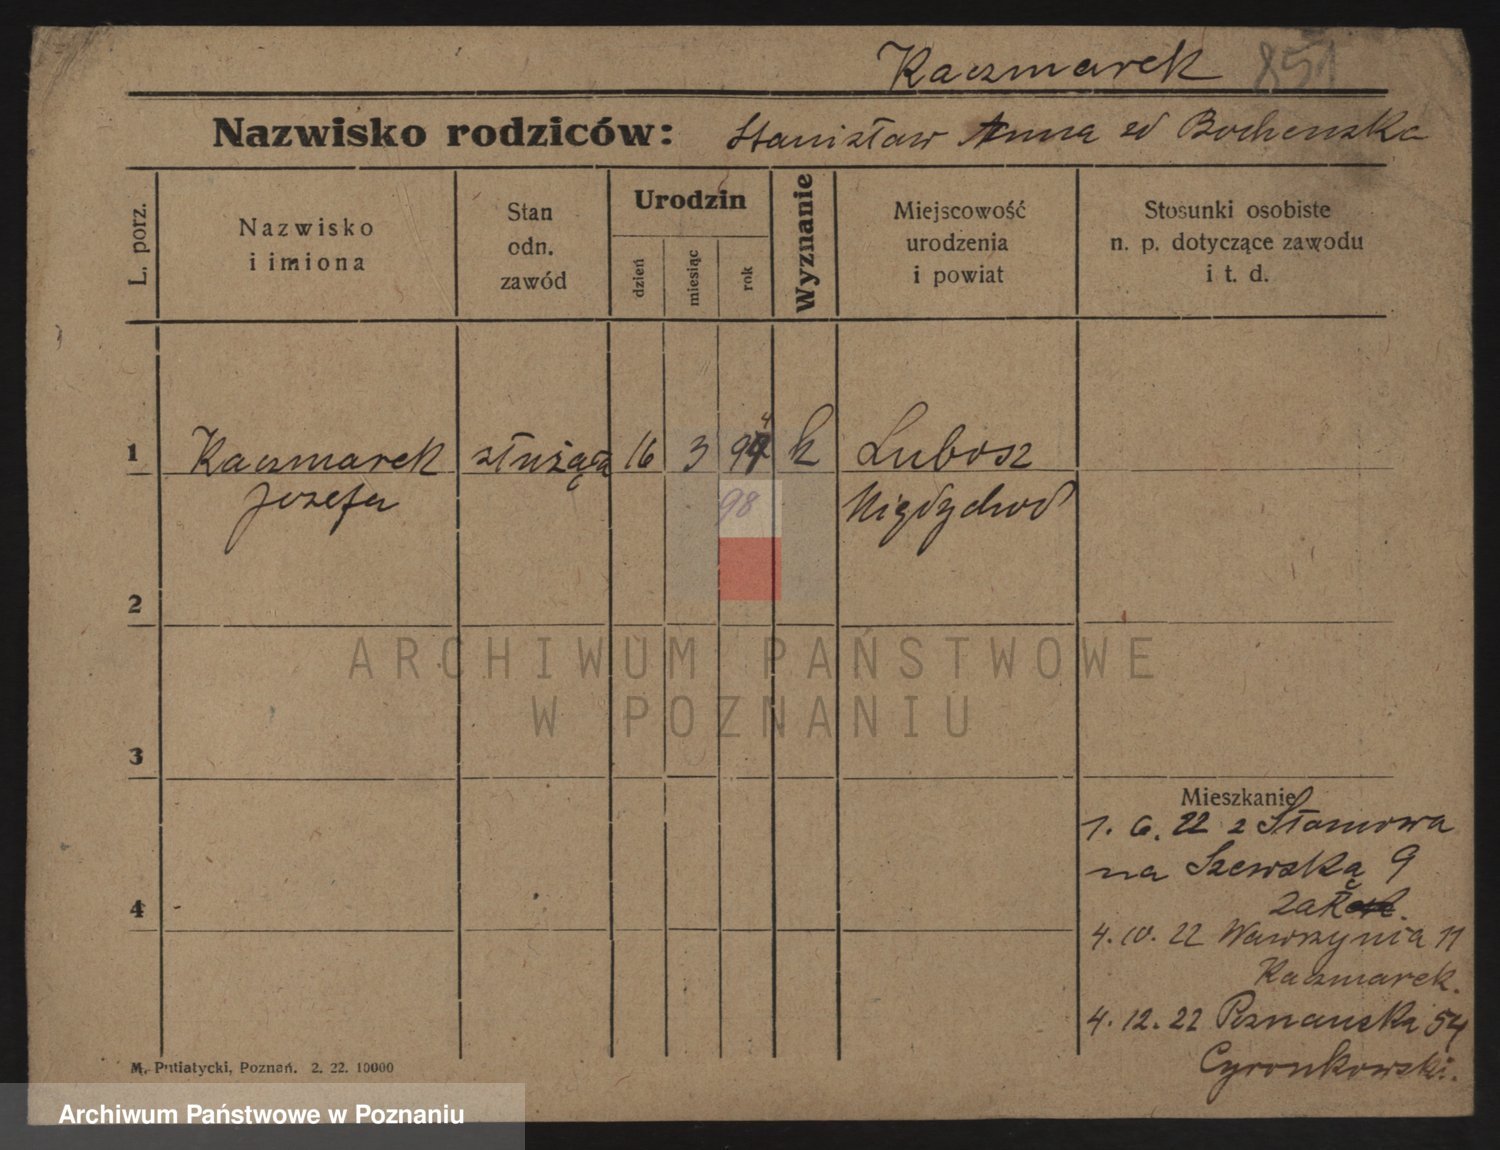 Kaczmarek 851
Nazwisko rodziców: Stanisław Anna zd Bochenska
L. porz.
Nazwisko
i imiona
Stan
odn.
zawód
Urodzin
dzień
miesiąc
rok
Wyznanie
Miejscowość
urodzenia
i powiat
Stosunki osobiste
n. p. dotyczące zawodu
i t. d.
4
1 Kaczmarek służąca 16 3 94 k Lubosz
Jozefa 98 Międzychod
2
ARCHIWUM PAŃSTWOWE
W POZNANIU
3
Mieszkanie
1. 6. 22 z Słomowa
na Szewska 9
4
4. 10. 22 Wawrzynia 11
Kaczmarek.
4. 12. 22 Poznanska 54
Cyronkowski.
M. Putiatycki, Poznań. 2. 22. 10000
Archiwum Państwowe w Poznaniu